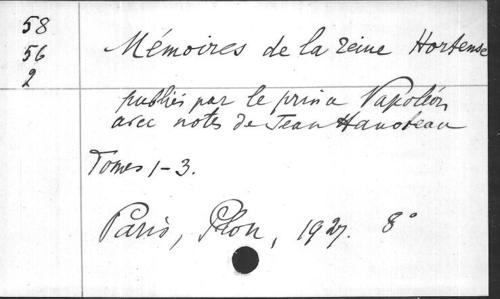 58
56
2
Mémoires de la reine Hortense
publiés par le prince Napoléon
avec notes de Jean Hanoteau
Tomes 1-3.
Paris, Plon, 1927. 8°